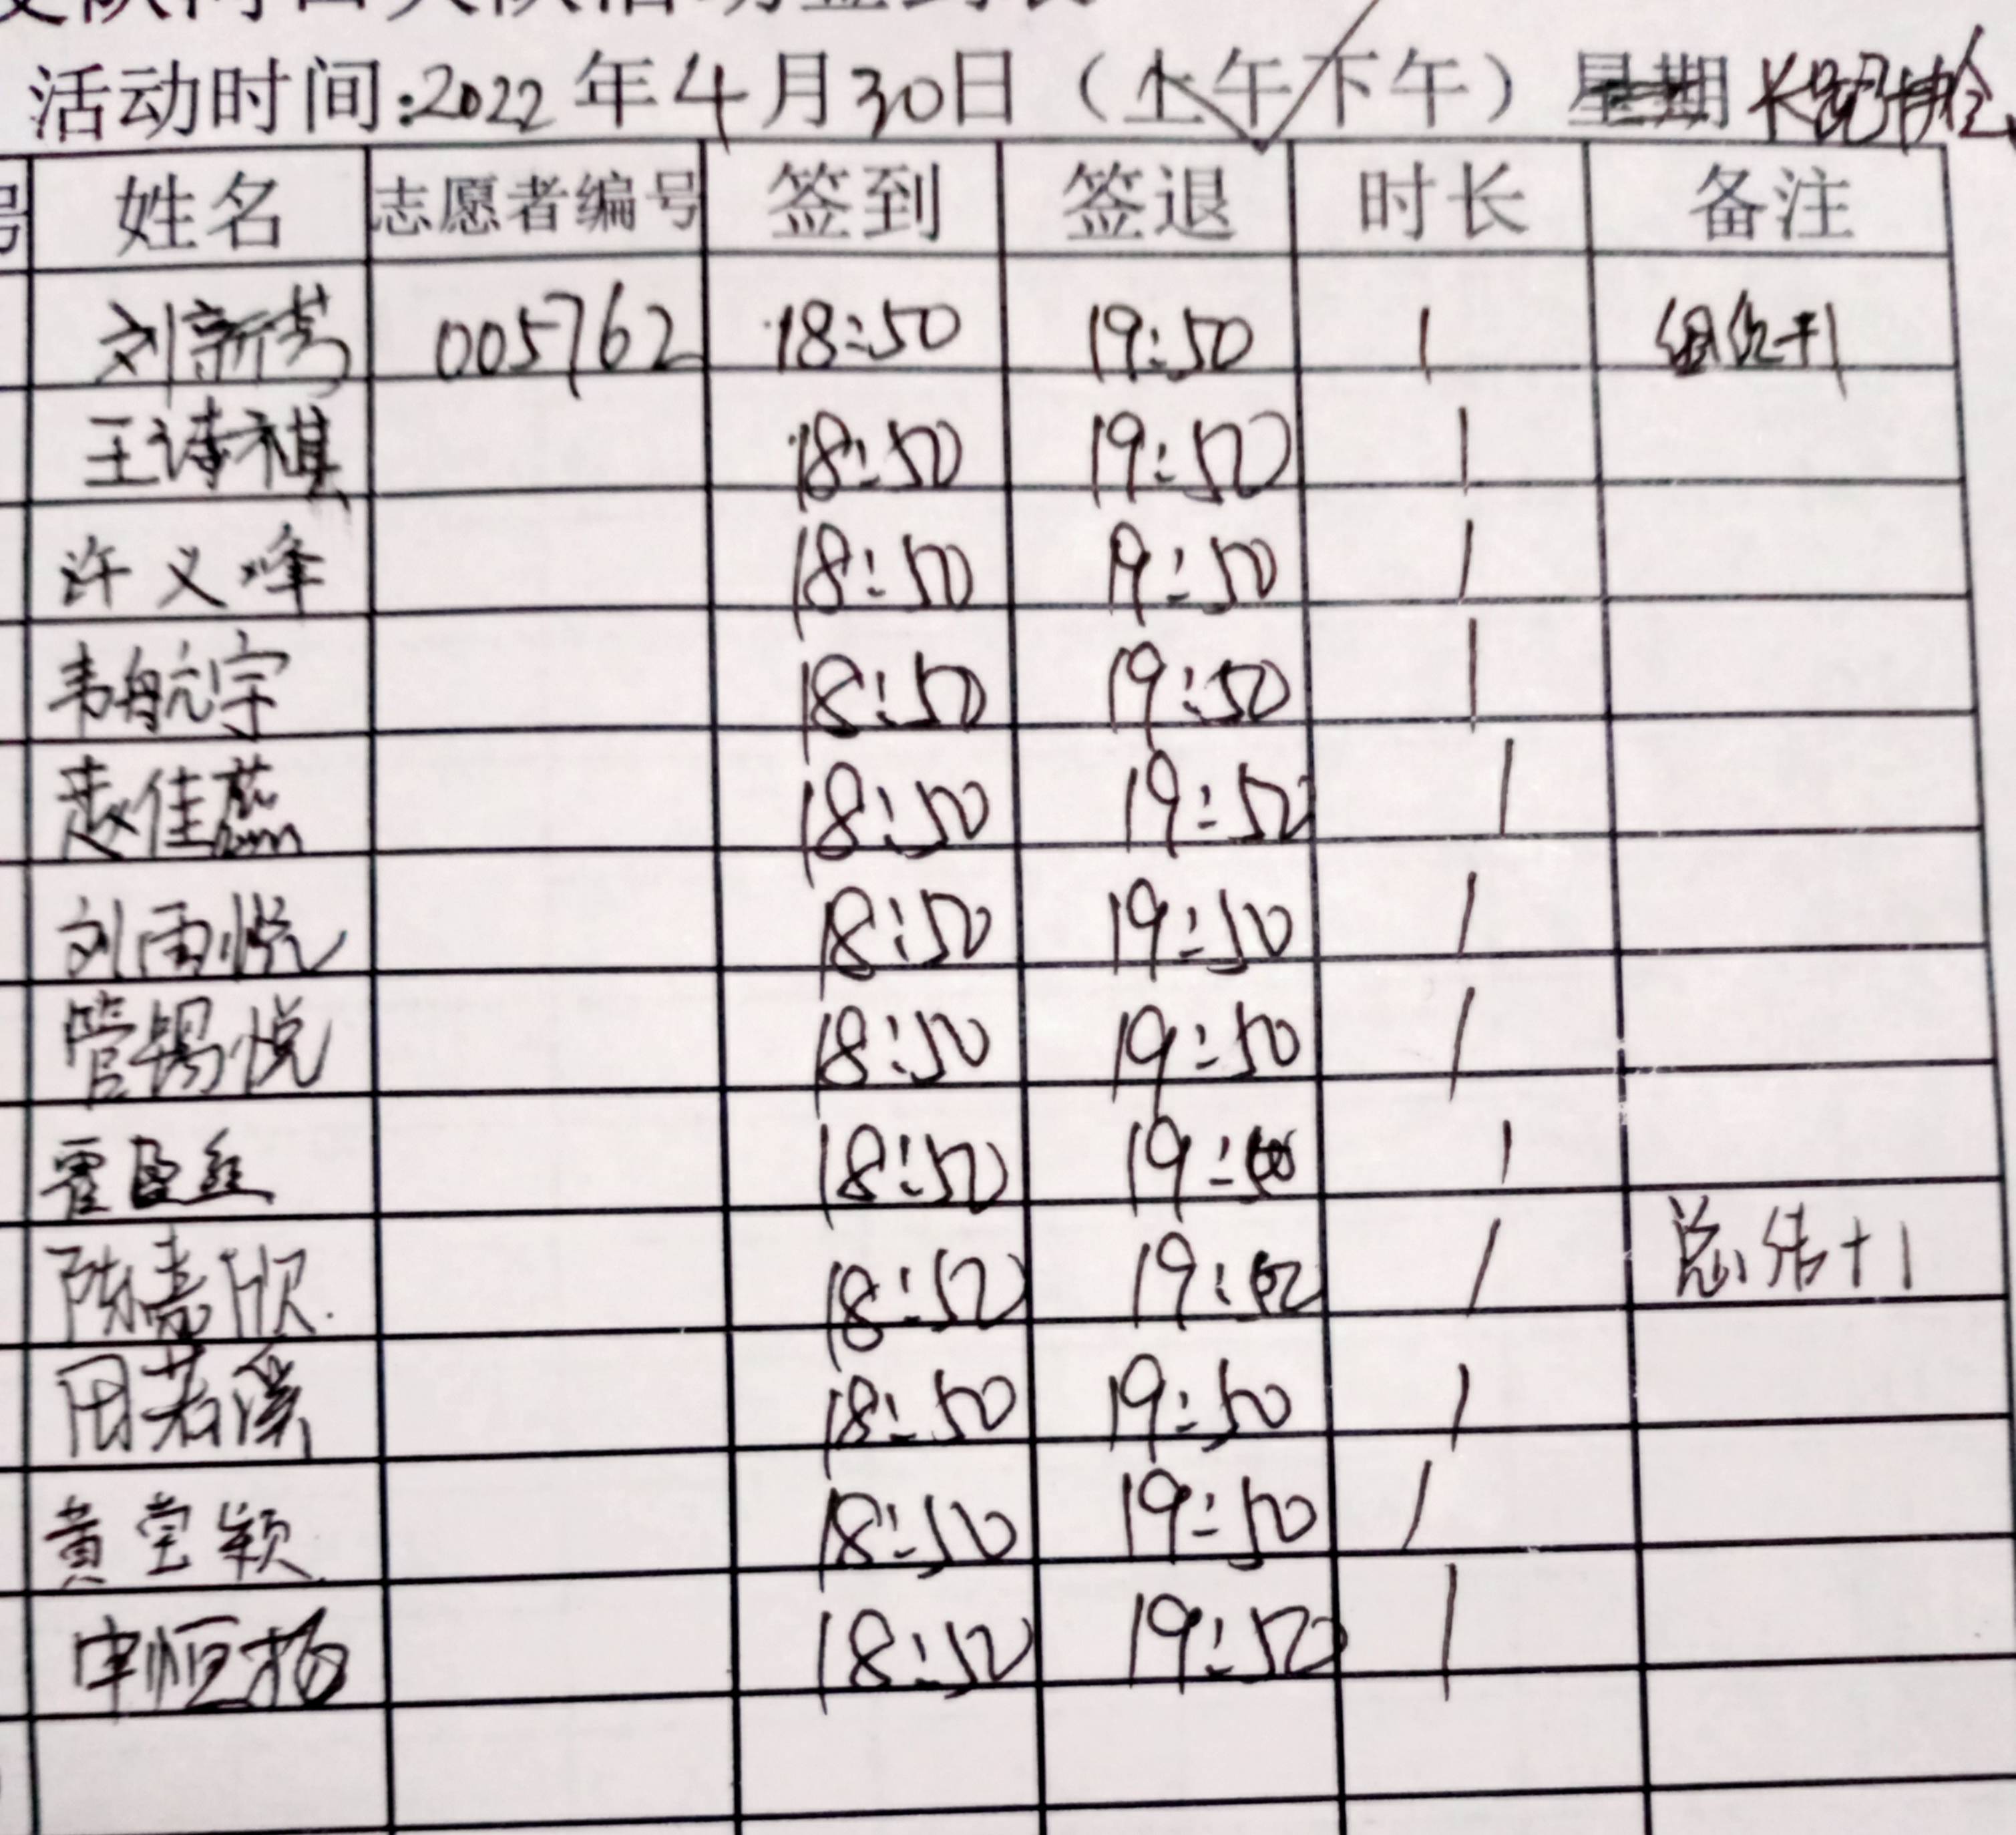 活动时间:2022年4月30日（上午/下午）星期
姓名 志愿者编号 签到 签退 时长 备注
刘新芳 005762 18:50 19:50 1 组织+1
王诗祺 18:50 19:50 1
许义峰 18:50 19:50 1
韦航宇 18:50 19:50 1
赵佳蕊 18:50 19:50 1
刘雨悦 18:50 19:50 1
管锡悦 18:50 19:50 1
霍 18:50 19:50 1
陈嘉欣 18:50 19:50 1 总结+1
田若溪 18:50 19:50 1
黄莹颖 18:50 19:50 1
申恒扬 18:50 19:50 1